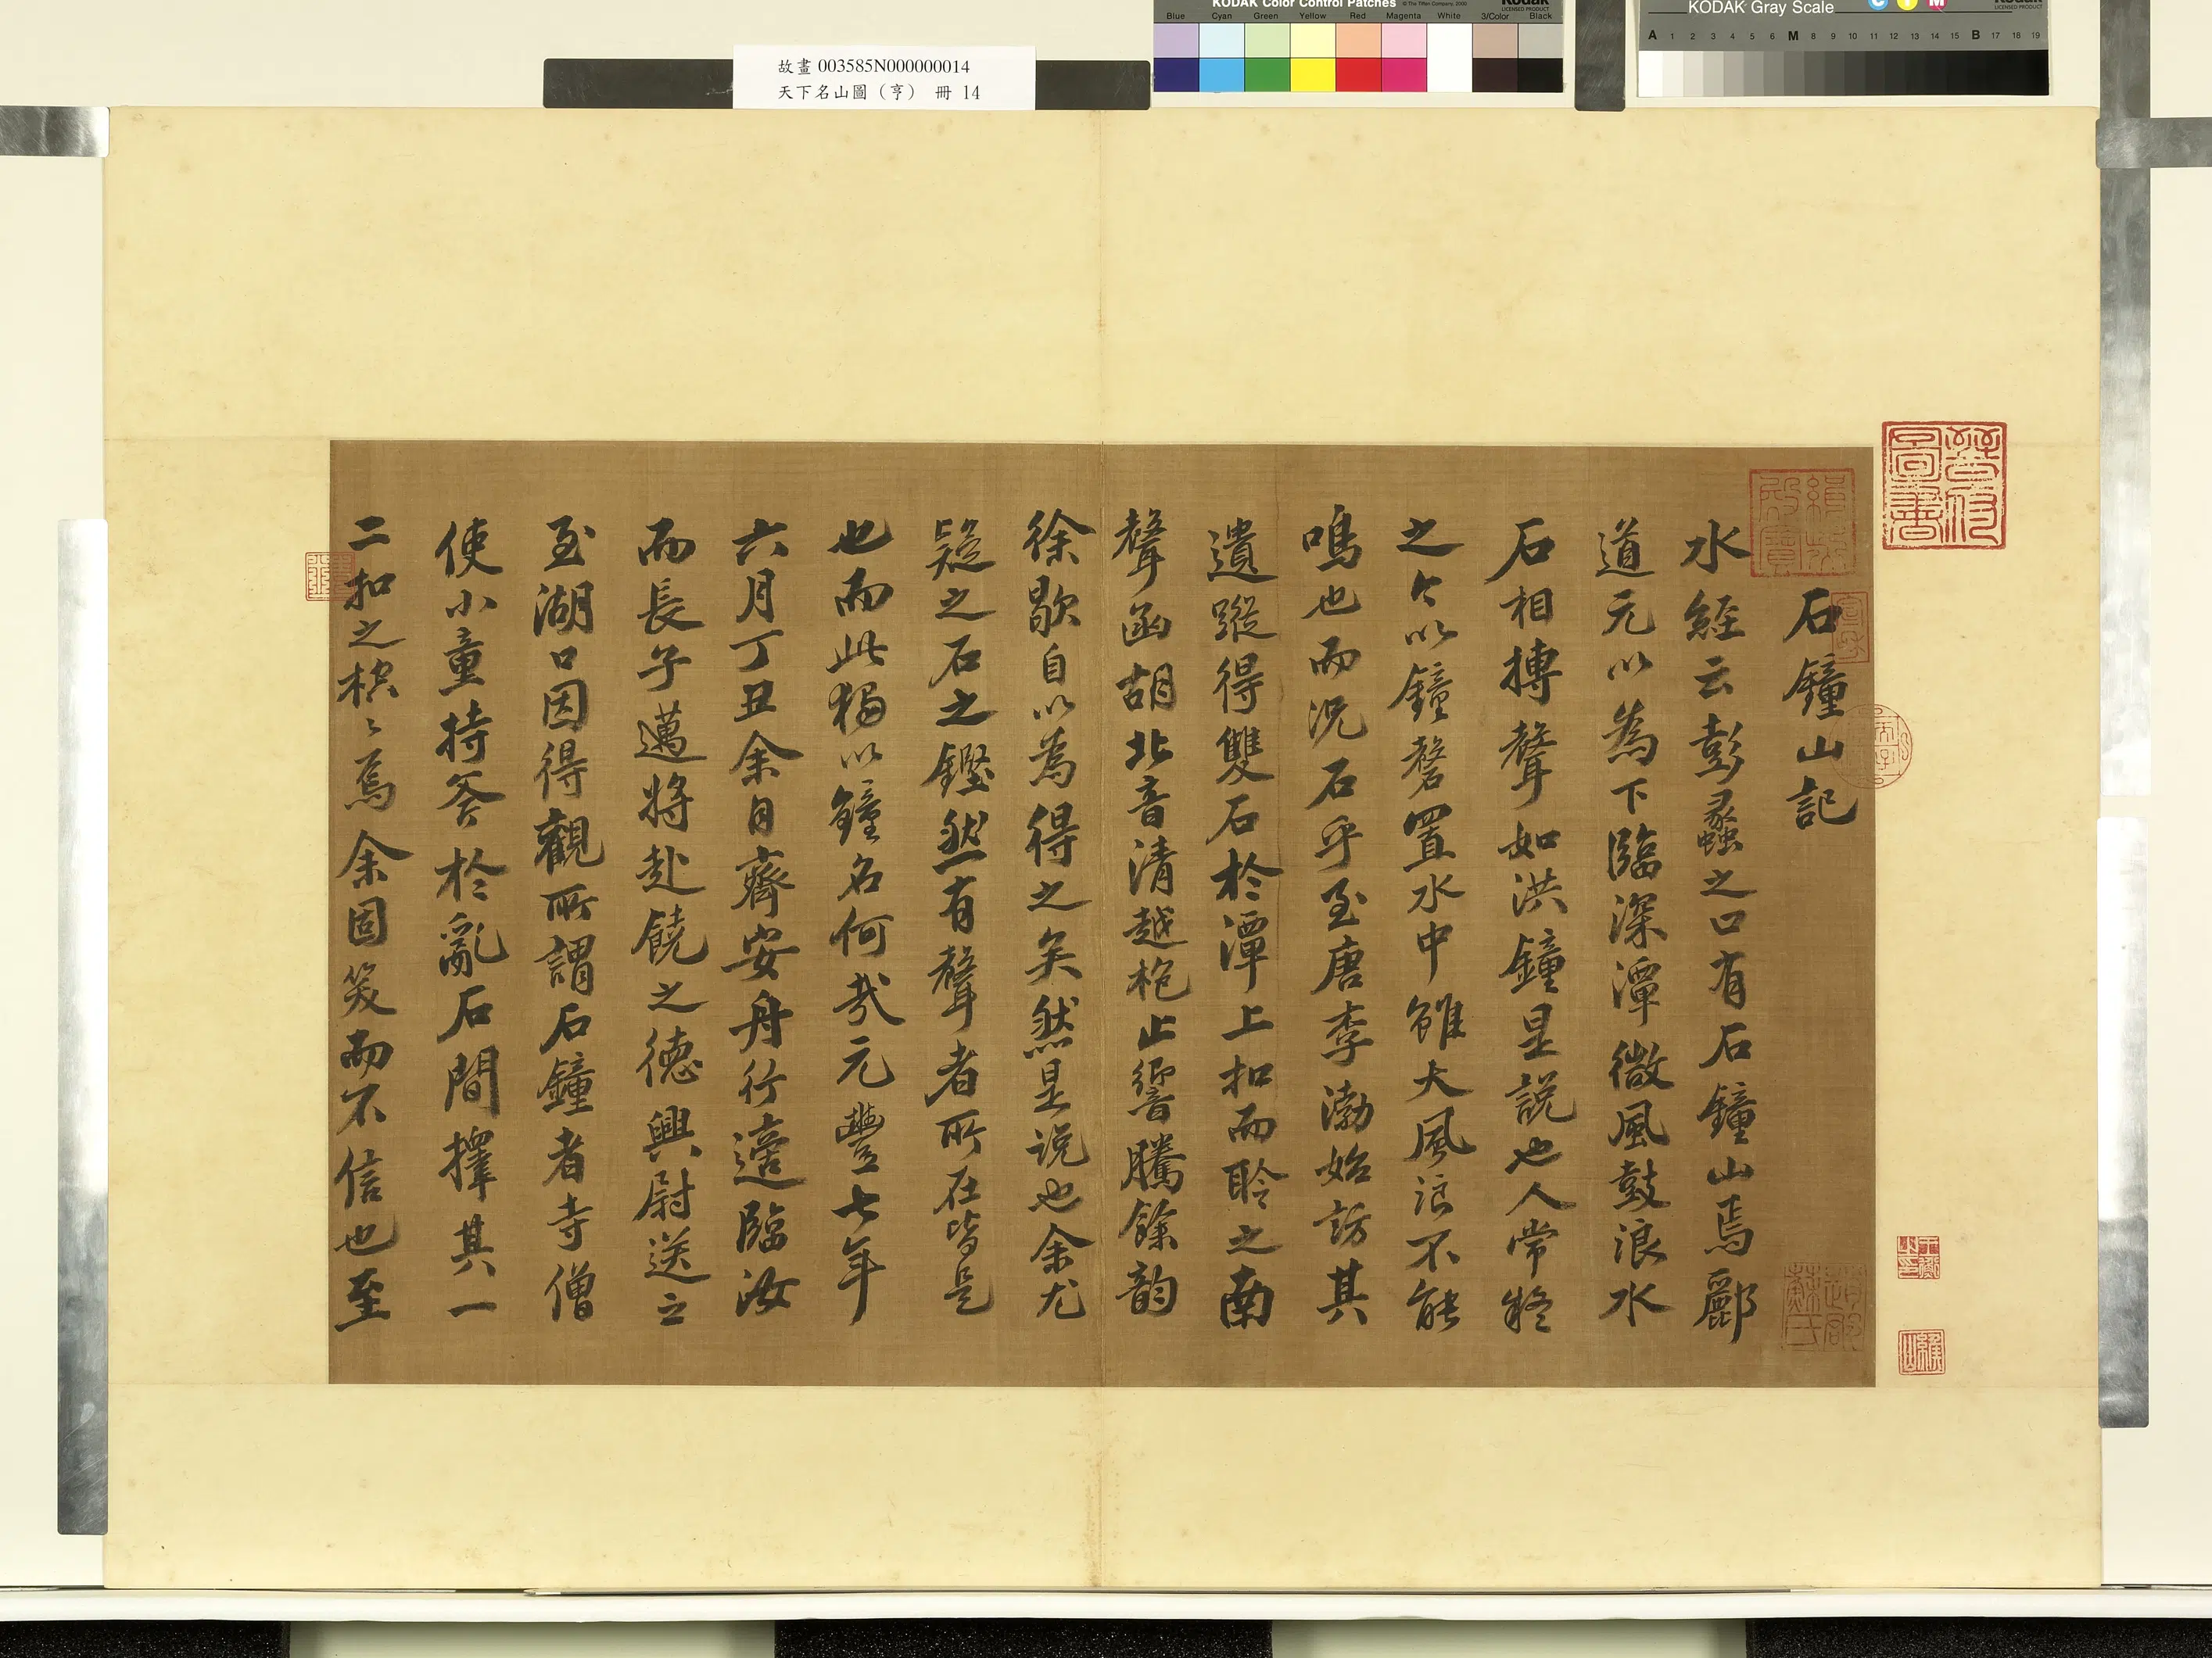 KODAK Color Control Patches © The Tiffen Company, 2000 Kodak LICENSED PRODUCT
Blue Cyan Green Yellow Red Magenta White 3/Color Black
KODAK Gray Scale C Y M Kodak LICENSED PRODUCT
A 1 2 3 4 5 6 M 8 9 10 11 12 13 14 15 B 17 18 19
故畫 003585N000000014
天下名山圖（亨） 冊 14
石鐘山記
水經云彭蠡之口有石鐘山焉酈
道元以為下臨深潭微風鼓浪水
石相搏聲如洪鐘是說也人常疑
之今以鐘磬置水中雖大風浪不能
鳴也而況石乎至唐李渤始訪其
遺蹤得雙石於潭上扣而聆之南
聲函胡北音清越枹止響騰餘韵
徐歇自以為得之矣然是说也余尤
疑之石之鏗然有聲者所在皆是
也而此獨以鐘名何哉元豐七年
六月丁丑余自齊安舟行適臨汝
而長子邁將赴饒之德興尉送之
至湖口因得觀所謂石鐘者寺僧
使小童持斧於亂石間擇其一
二扣之硿〻焉余固笑而不信也至
晉府圖書